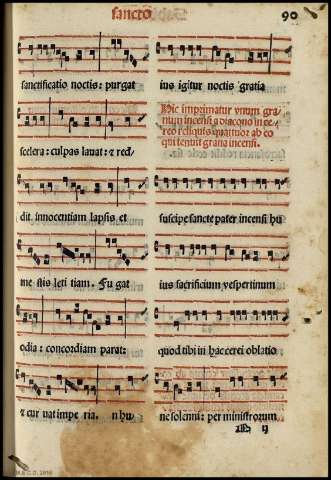 sancto
90
sanctificatio noctis: purgat
scelera: culpas lauat: ⁊ red/
dit innocentiam lapsis et
me stis leti tiam. Fu gat
odia: concordiam parat:
⁊ cur uat impe ria. n hu/
ius igitur noctis gratia
Hic imprimatur vnum gra
num incensi a diacono in ce
reo reliquis quattuor ab eo
qui tenuit grana incensi.
suscipe sancte pater incensi hu
ius sacrificium vespertinum
quod tibi in hac cerei oblatio
ne solenni: per ministrorum
ij